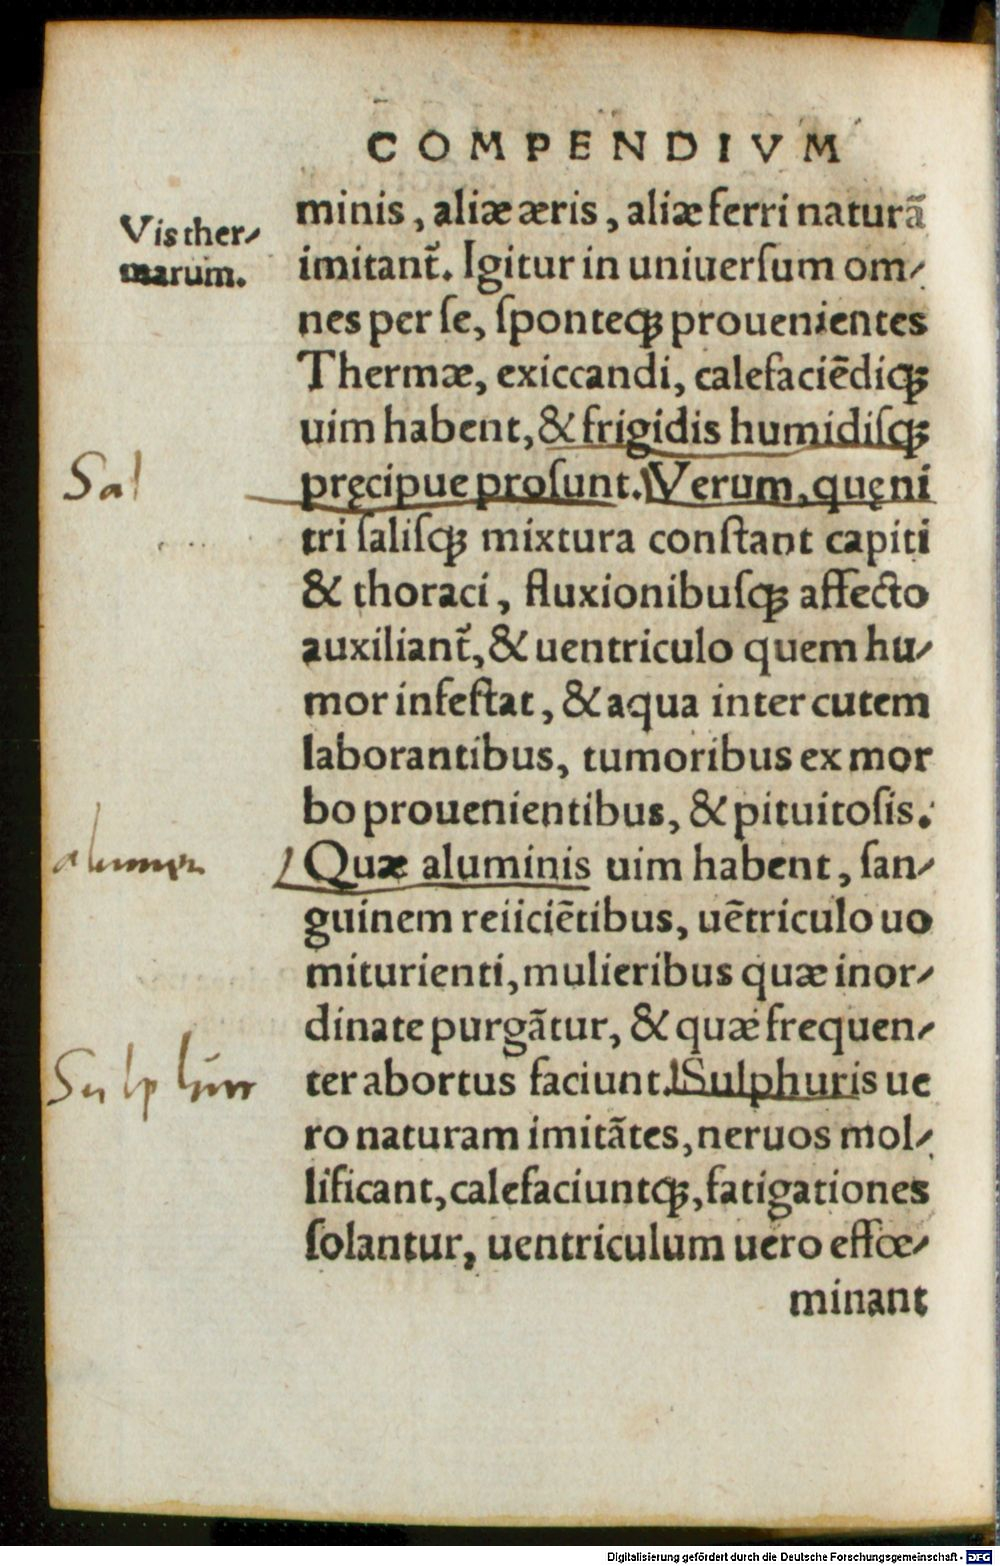 COMPENDIVM
Vis ther⸗
marum.
minis, aliæ æris, aliæ ferri naturã
imitant᷑. Igitur in uniuerſum om⸗
nes per ſe, ſponteq́ꝫ prouenientes
Thermæ, exiccandi, calefaciẽdiq́ꝫ
uim habent, & frigidis humidiſq́ꝫ
pręcipue proſunt. Verum, quę ni
tri ſaliſq́ꝫ mixtura conſtant capiti
& thoraci, fluxionibuſq́ꝫ affecto
auxiliant᷑, & uentriculo quem hu⸗
mor infeſtat, & aqua inter cutem
laborantibus, tumoribus ex mor
bo prouenientibus, & pituitoſis.
Quæ aluminis uim habent, ſan⸗
guinem reiiciẽtibus, uẽtriculo uo
miturienti, mulieribus quæ inor⸗
dinate purgãtur, & quæ frequen⸗
ter abortus faciunt. Sulphuris ue
ro naturam imitãtes, neruos mol⸗
lificant, calefaciuntq́ꝫ, fatigationes
ſolantur, uentriculum uero effœ⸗
minant
Sal
alumen
Sulphur
Digitalisierung gefördert durch die Deutsche Forschungsgemeinschaft - DFG